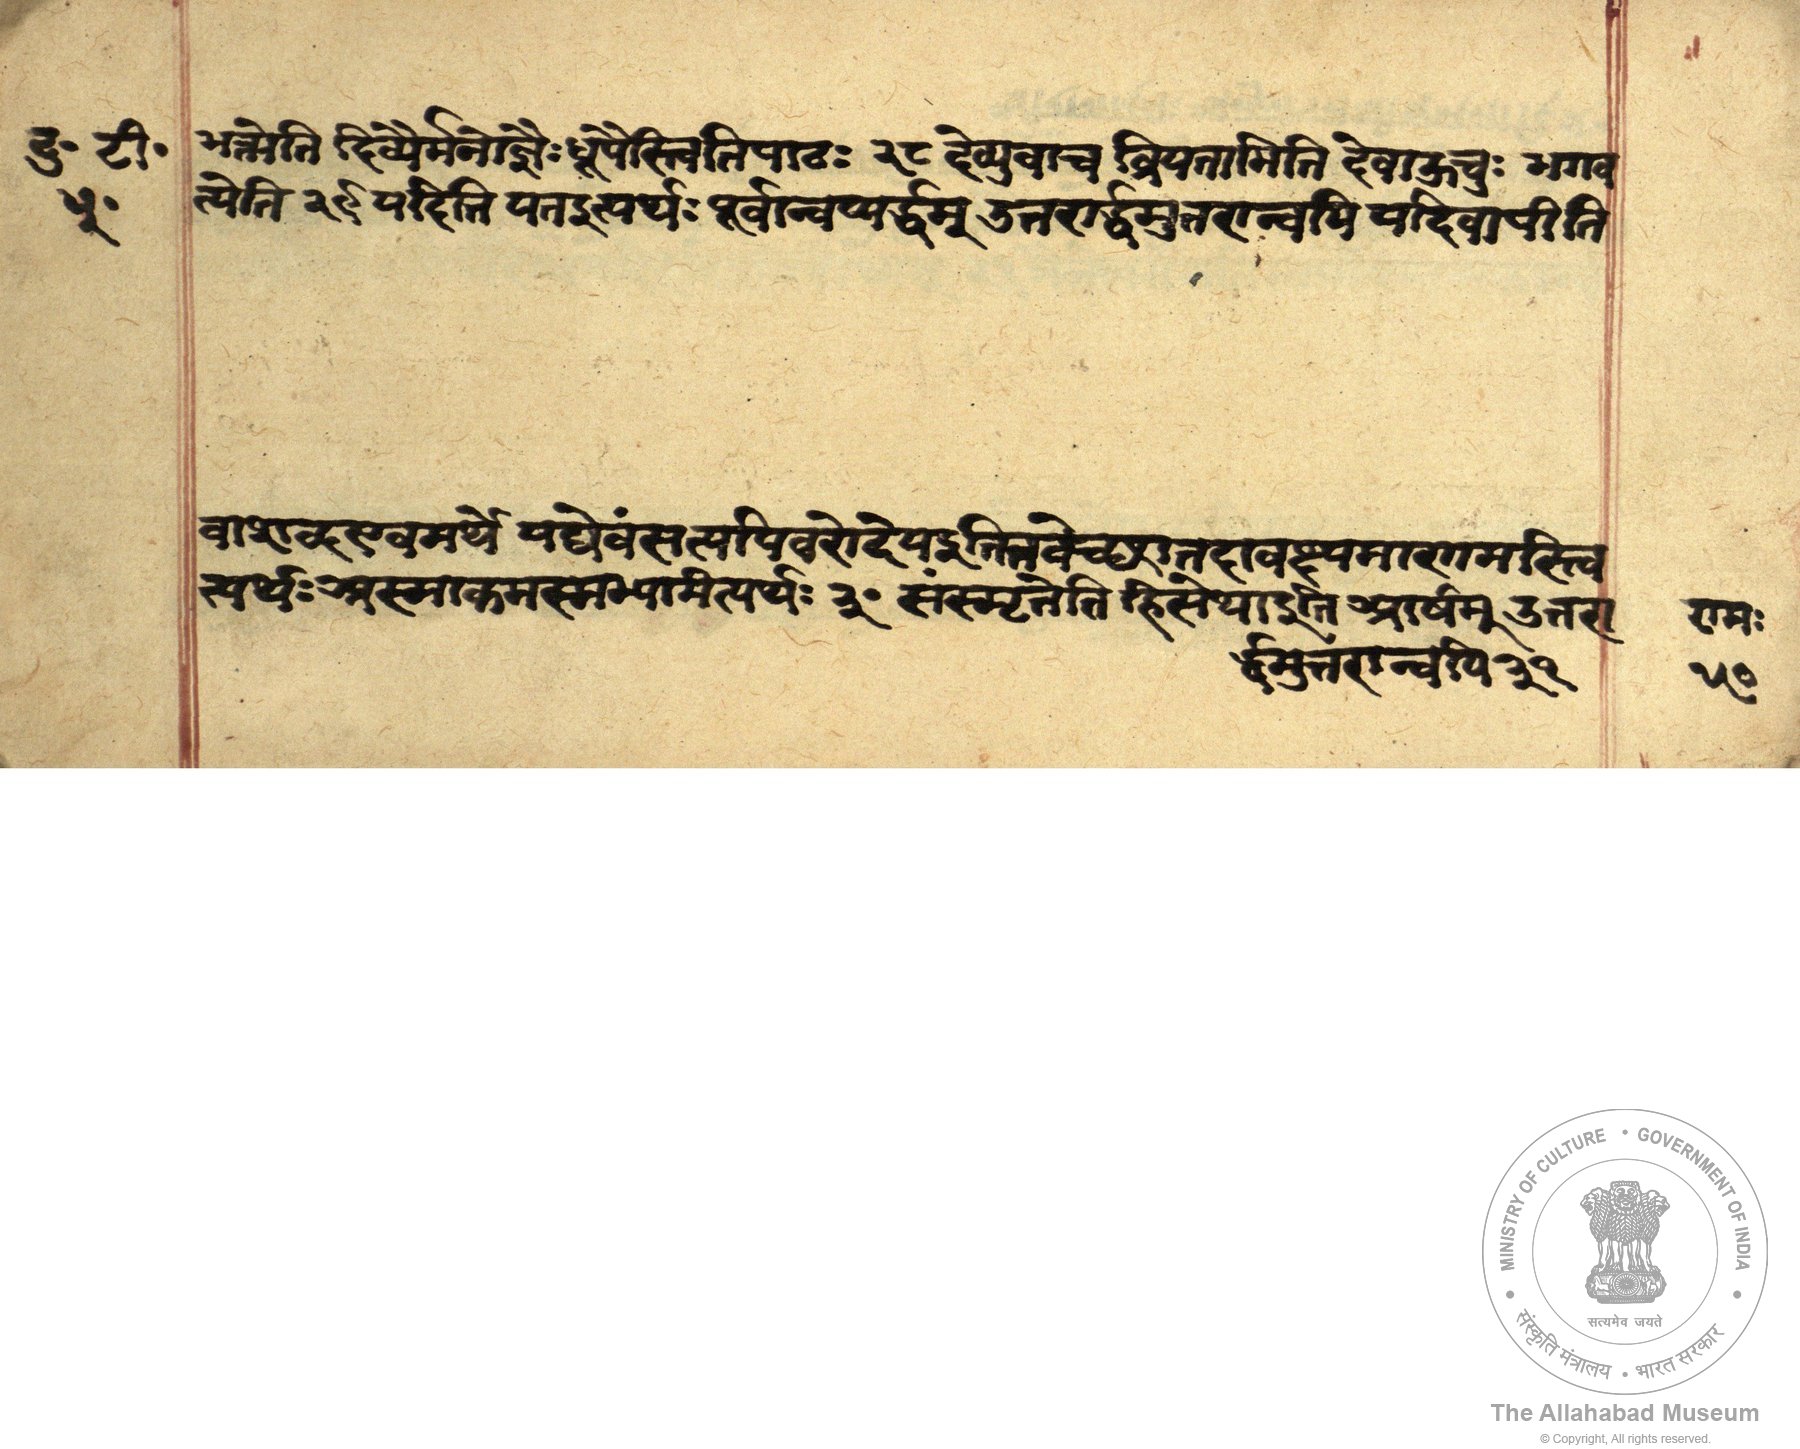 दु॰ टी॰ भक्त्येति दिव्यैर्मनोज्ञैः धूपैस्त्वितिपाठः २८ देव्युवाच व्रियतामिति देवाऊचुः भगव
५॰ त्येति २९ यदिति यतइत्यर्थः पूर्वान्वय्यर्द्धम् उत्तरार्द्धमुत्तरान्वयि यदिवापीति
वाशब्दएवमर्थे यद्येवंसत्यपिवरोदेयइतितवेच्छातदावक्ष्यमाणमस्त्वि
त्यर्थः अस्माकमस्मभ्यमित्यर्थः ३॰ संस्मृतेति हिंसेथाइति आर्षम् उत्तरा
र्द्धमुत्तरान्वयि ३१
रामः
५०
MINISTRY OF CULTURE • GOVERNMENT OF INDIA
सत्यमेव जयते
संस्कृति मंत्रालय • भारत सरकार
The Allahabad Museum
© Copyright, All rights reserved.